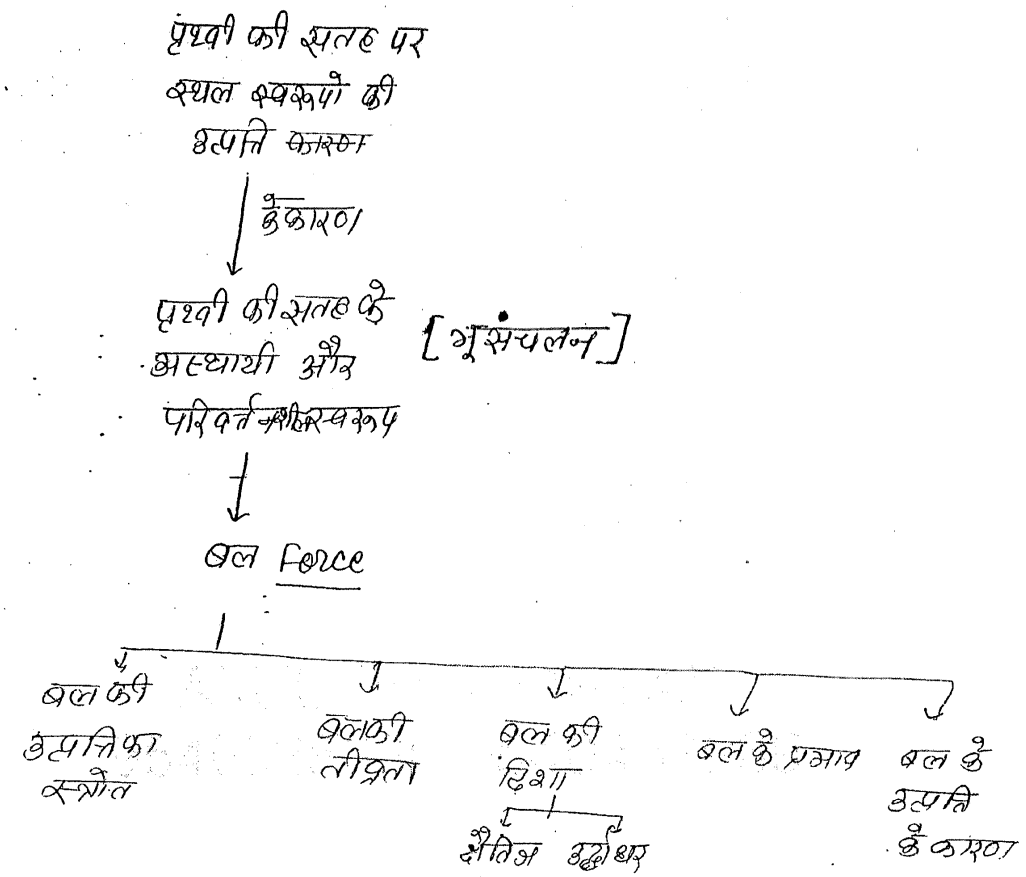 पृथ्वी की सतह पर
स्थल स्वरूपो की
उत्पत्ति कारण
के कारण
पृथ्वी की सतह के
अस्थायी और
परिवर्तनशील स्वरूप
[भू संचलन]
बल Force
बल की
उत्पत्ति का
स्त्रोत
बल की
तीव्रता
बल की
दिशा
क्षैतिज उर्द्धाधर
बल के प्रभाव
बल के
उत्पत्ति
के कारण